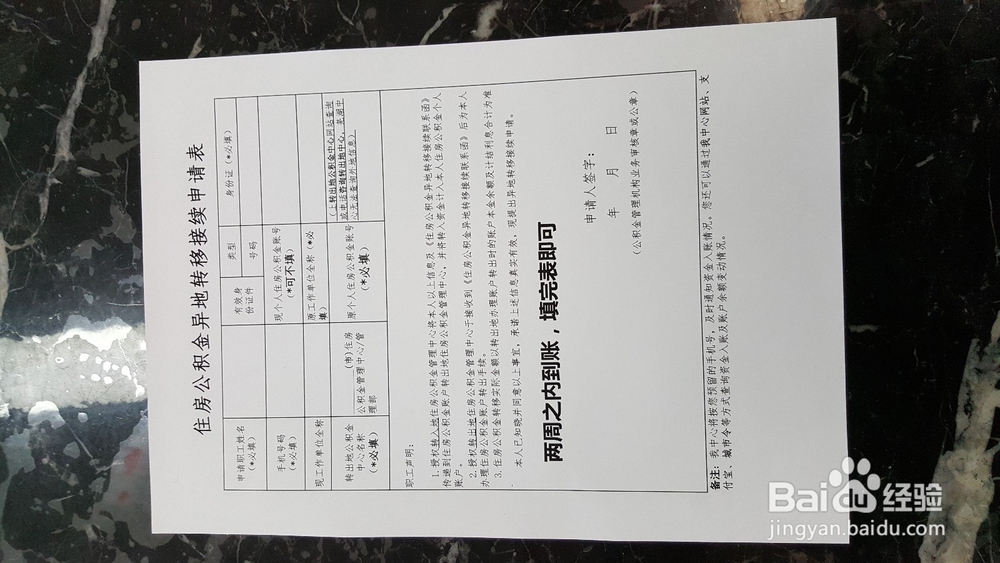 住房公积金异地转移接续申请表
申请职工姓名
（*必填）
有效身
份证件
类型
身份证（*必填）
号码
手机号码
（*必填）
现个人住房公积金账号
（*可不填）
现工作单位全称
原工作单位全称（*必
填）
转出地公积金
中心名称
（*必填）
（市）住房
公积金管理中心/管
理部
原个人住房公积金账号
（*必填）
（上转出地公积金中心网站查询
或电话咨询转出地中心，芜湖中
心无法查询外地信息）
职工声明：
1.授权转入地住房公积金管理中心将本人以上信息及《住房公积金异地转移接续联系函》
传递到住房公积金账户转出地住房公积金管理中心，并将转入资金计入本人住房公积金个人
账户。
2.授权转出地住房公积金管理中心于接收到《住房公积金异地转移接续联系函》后为本人
办理住房公积金账户转出手续。
3.住房公积金转移实际金额以转出地办理账户转出时的账户本金余额及计结利息合计为准
。
本人已知晓并同意以上事宜，承诺上述信息真实有效，现提出异地转移接续申请。
两周之内到账，填完表即可
申请人签字：
年 月 日
（公积金管理机构业务审核章或公章）
备注：我中心将按您预留的手机号，及时通知资金入账情况。您还可以通过我中心网站、支
付宝、城市令等方式查询资金入账及账户余额变动情况。
Baidu经验
jingyan.baidu.com